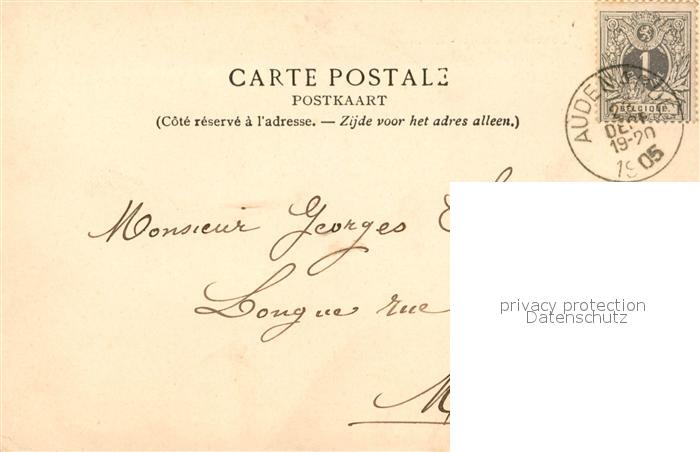 1
BELGIQUE
DEC
19-20
1905
CARTE POSTALE
POSTKAART
(Côté réservé à l'adresse. — Zijde voor het adres alleen.)
Monsieur Georges
Longue rue
privacy protection
Datenschutz